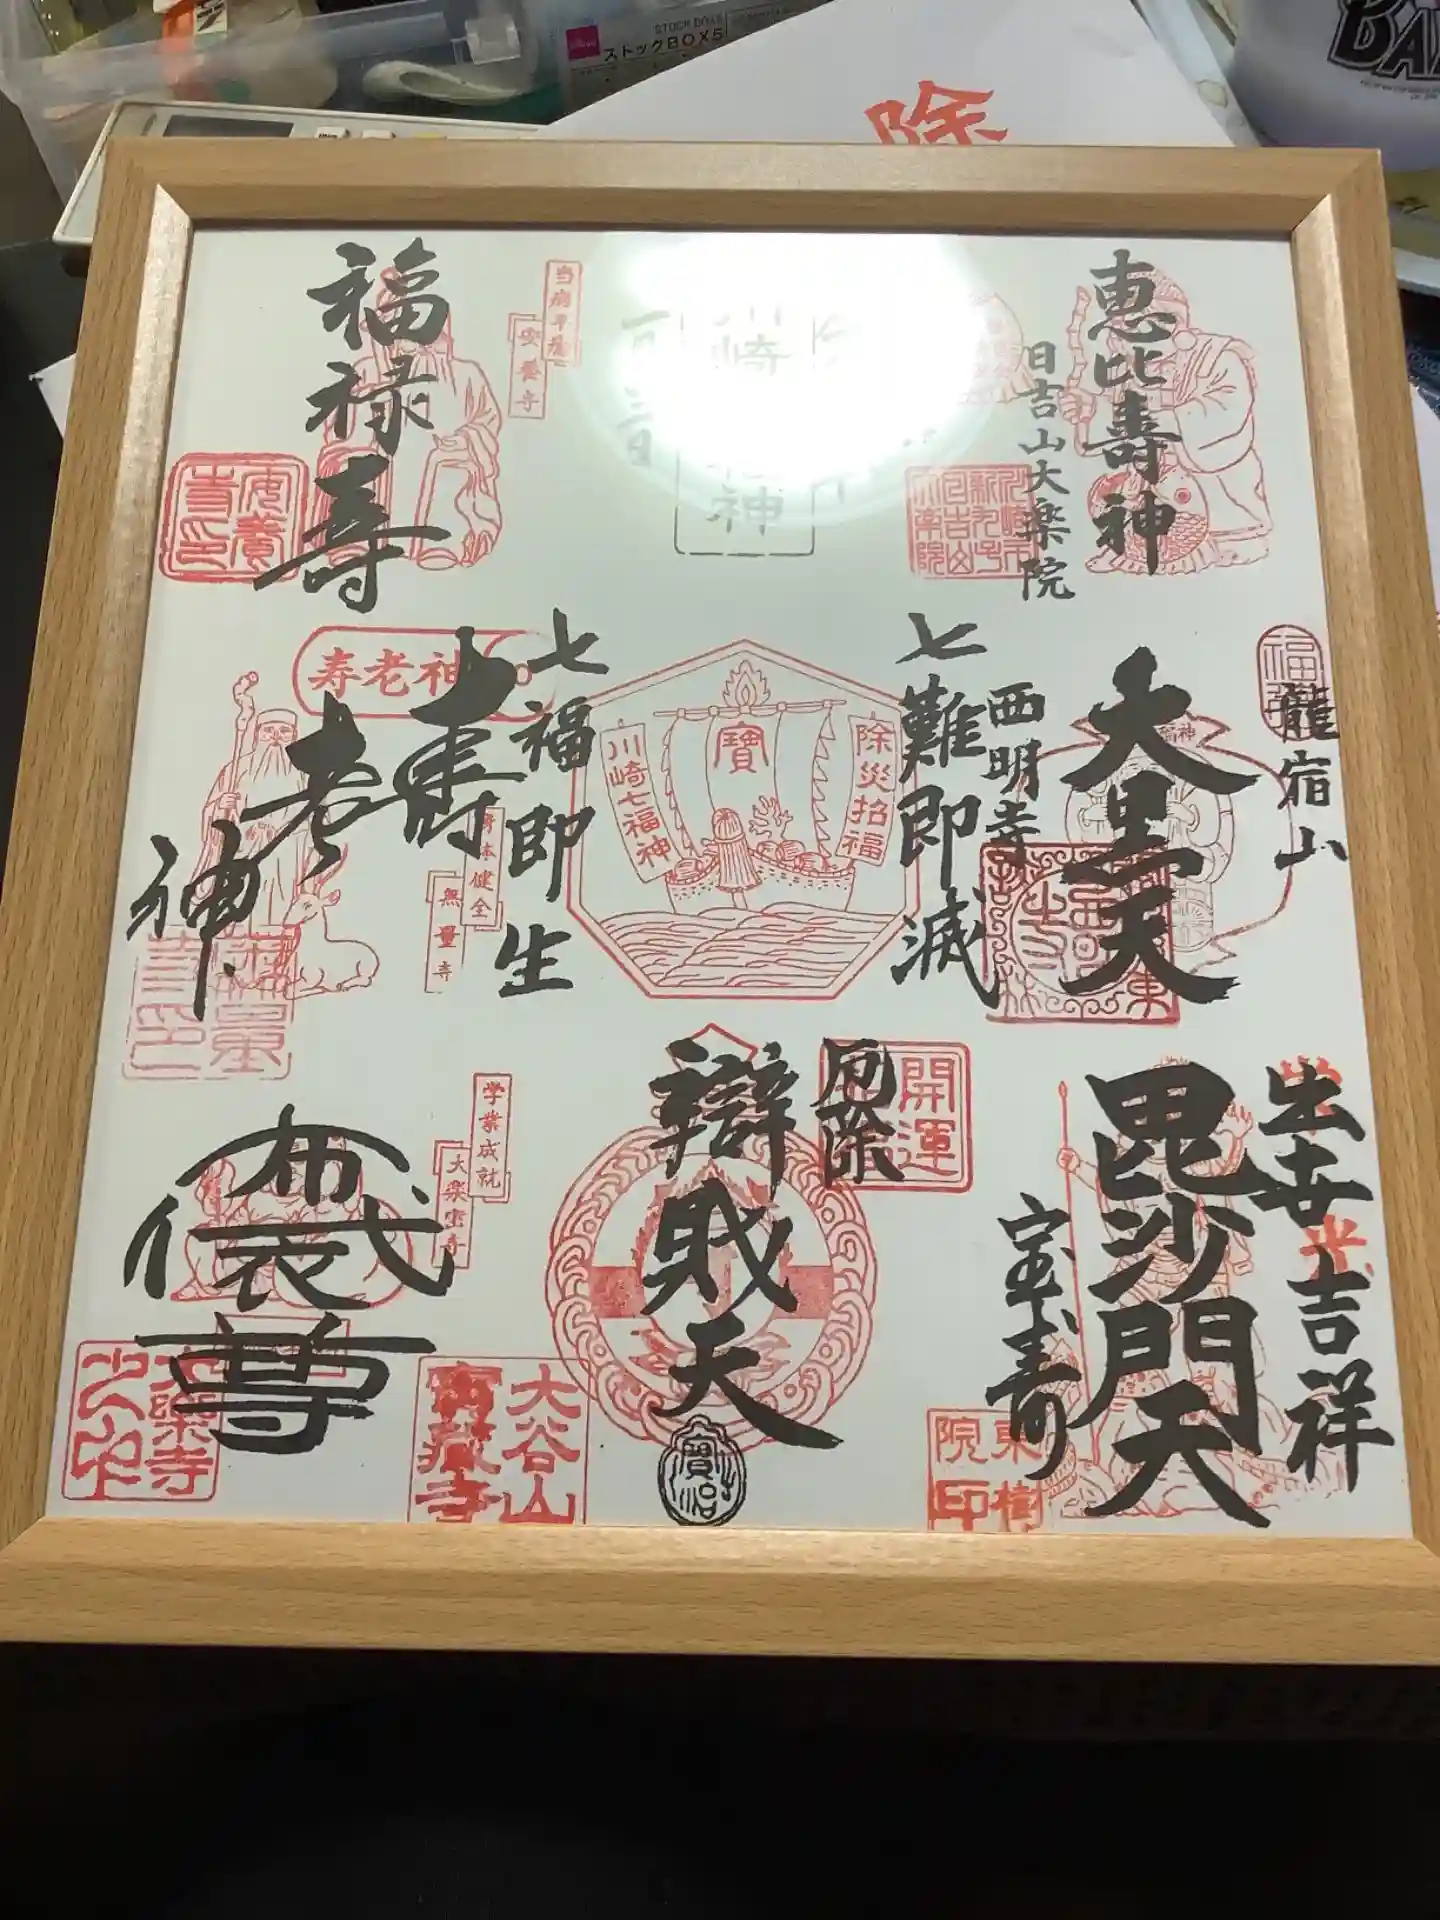 STOCK BOX5
ストックBOX5
除
恵比壽神
日吉山大楽院
川崎
神
福禄寿
当病平癒
安養寺
安養寺印
福
龍宿山
大黒天
西明寺
七難即滅
除災招福
寶
川崎七福神
七福即生
寿老神
壽老神
身体健全
無量寺
出世吉祥
毘沙門天
宝寿
東樹院印
開運
厄除
辯財天
大谷山
寶蔵寺
学業成就
大楽密寺
布袋尊
大樂寺